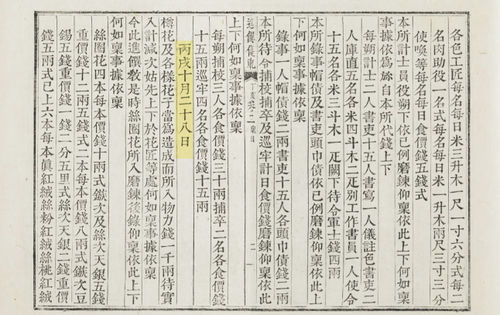 各色工匠每名每日米三升木一尺一寸六分式每二
名肉助役一名式每名每日米一升木兩尺三寸三分
使喚等每名每日食價錢五錢式
本所計士員役朔下依已例磨鍊仰稟依此上下何如稟
事據依自本所代錢上下
每朔計士二人書吏十五人書寫一人儀註色書吏二
人庫直五名各米四斗木二疋別工作書員一人使令
十五名各米三斗木一疋闕下待令軍士錢四兩
本所錄事帽債錢及書吏頭巾債錢依已例磨鍊仰稟依此上
下何如稟事據依稟
錄事一人帽債錢二兩書吏十五人各頭巾債錢二兩
本所待令捕校捕卒及巡牢計日食價錢磨鍊仰稟依此
上下何如稟事據依稟
每朔捕校三人各食價錢三十兩捕卒二名各食價錢
十五兩巡牢四名各食價錢十五兩
丙戌十月二十八日
樽花及各樣花子當爲造成而所入物力錢一千兩待實
入計減次姑先上下於花匠等處何如稟事據依稟
今此進饌教是時絲圈花所入磨鍊後錄仰稟依此上下
何如稟事據依稟
絲圈花四本每本價錢十兩式鐵次及絲次天銀五錢
重價錢十二兩五錢式二本每本價錢八兩式鐵次豆
錫五兩重價錢一錢二分五里式絲次天銀二錢重價
錢五兩式已上六本每本眞紅絨絲粉紅絨絲桃紅絨